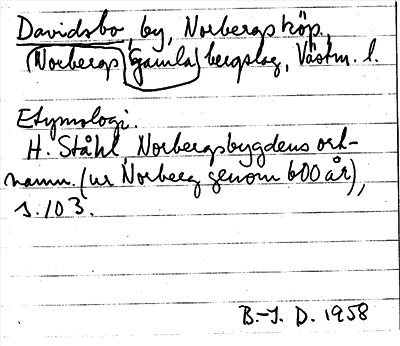 Davidsbo, by, Norbergs köp.,
Norbergs gamla bergslag, Västm. l.
Etymologi.
H. Ståhl, Norbergsbygdens ort-
namn. (ur Norberg genom 600 år),
s. 103.
B-J. D. 1958